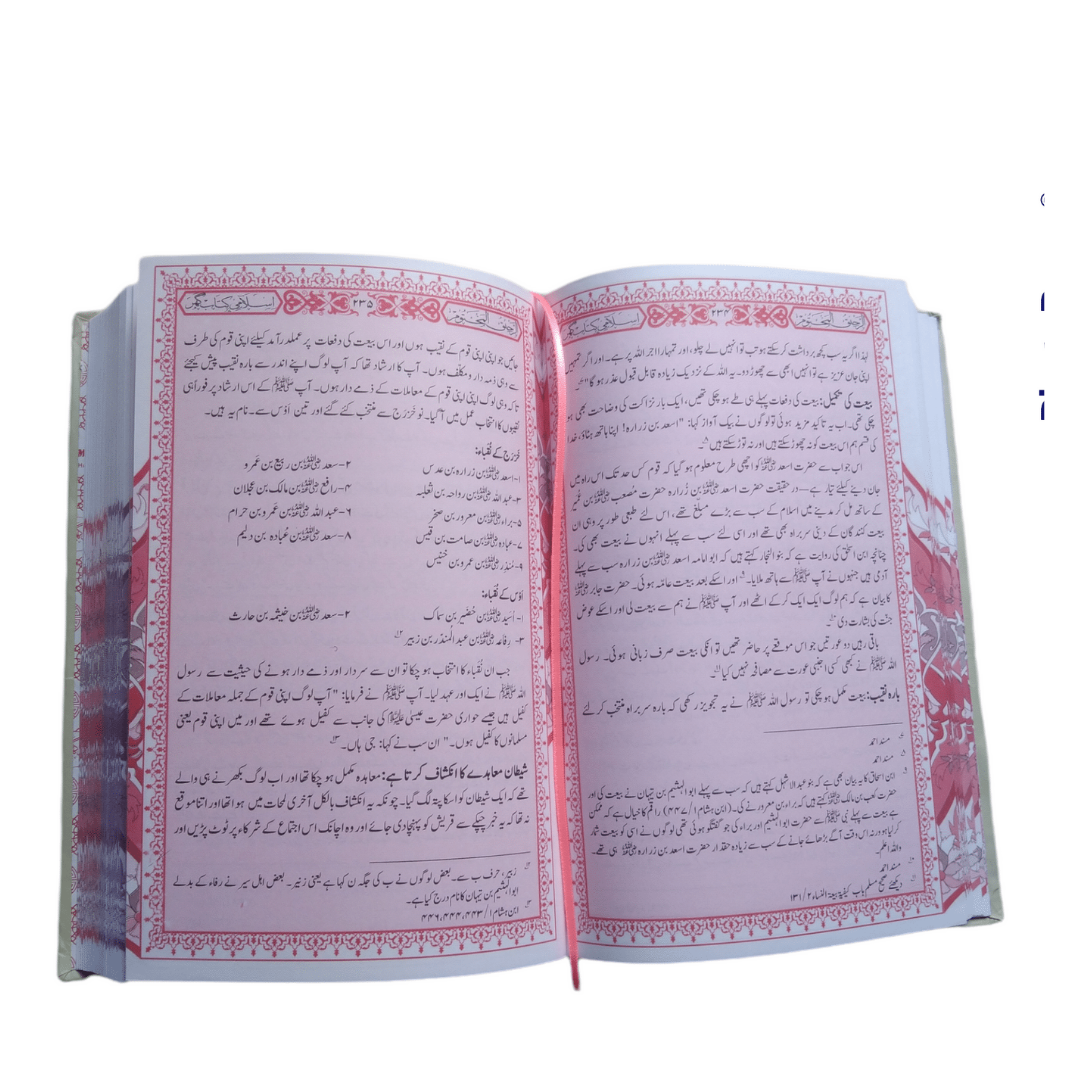 الرحیق المختوم ۲۳۴ اسلامی کتاب گھر
لہٰذا اگر یہ سب کچھ برداشت کر سکتے ہو تب تو انہیں لے چلو اور تمہارا اجر اللہ پر ہے۔ اور اگر تمہیں
اپنی جان عزیز ہے تو انہیں ابھی سے چھوڑ دو۔ یہ اللہ کے نزدیک زیادہ قابل قبول عذر ہو گا"
بیعت کی تکمیل: بیعت کی دفعات پہلے ہی طے ہو چکی تھیں، ایک بار نزاکت کی وضاحت بھی ہو
چکی تھی۔ اب یہ تاکید مزید ہوئی تو لوگوں نے بیک آواز کہا: "اسعد بن زرارہ! اپنا ہاتھ ہٹاؤ، خدا
کی قسم ہم اس بیعت کو نہ چھوڑ سکتے ہیں اور نہ توڑ سکتے ہیں
اس جواب سے حضرت اسعد رضی اللہ عنہ کو اچھی طرح معلوم ہو گیا کہ قوم کس حد تک اس راہ میں
جان دینے کیلئے تیار ہے—درحقیقت حضرت اسعد رضی اللہ عنہ بن زُرارہ حضرت مُصعب رضی اللہ عنہ بن عُمیر
کے ساتھ مل کر مدینے میں اسلام کے سب سے بڑے مبلّغ تھے، اس لئے طبعی طور پر وہی ان
بیعت کنندگان کے دینی سربراہ بھی تھے اور اسی لئے سب سے پہلے انہوں نے بیعت بھی کی۔
چنانچہ ابن اسحٰق کی روایت ہے کہ بنو النجار کہتے ہیں کہ ابو امامہ اسعد رضی اللہ عنہ بن زرارہ سب سے پہلے
آدمی ہیں جنہوں نے آپ ﷺ سے ہاتھ ملایا۔ اور اسکے بعد بیعت عامّہ ہوئی۔ حضرت جابر رضی اللہ عنہ
کا بیان ہے کہ ہم لوگ ایک ایک کر کے اٹھے اور آپ ﷺ نے ہم سے بیعت لی اور اسکے عوض
جنت کی بشارت دی
باقی رہیں دو عورتیں جو اس موقعے پر حاضر تھیں تو انکی بیعت صرف زبانی ہوئی۔ رسول
اللہ ﷺ نے کبھی کسی اجنبی عورت سے مصافحہ نہیں کیا
بارہ نقیب: بیعت مکمل ہو چکی تو رسول اللہ ﷺ نے یہ تجویز رکھی کہ بارہ سربراہ منتخب کر لئے
مسند احمد
مسند احمد
ابن اسحاق کا یہ بیان بھی ہے کہ بنو عبدالاشہل کہتے ہیں کہ سب سے پہلے ابوالہیثم بن تیہان نے بیعت کی اور
حضرت کعب بن مالک رضی اللہ عنہ کہتے ہیں کہ براء بن معرور نے کی۔ (ابن ہشام ۱/ ۴۴۷) راقم کا خیال ہے کہ ممکن
ہے بیعت سے پہلے نبی ﷺ سے حضرت ابوالہیثم اور براء کی جو گفتگو ہوئی تھی لوگوں نے اسی کو بیعت شمار
کر لیا ہو ورنہ اس وقت آگے بڑھائے جانے کے سب سے زیادہ حقدار حضرت اسعد بن زرارہ رضی اللہ عنہ ہی تھے۔
واللہ اعلم۔
مسند احمد
دیکھئے صحیح مسلم باب کیفیۃ بیعۃ النساء ۲/ ۱۳۱
الرحیق المختوم ۲۳۵ اسلامی کتاب گھر
جائیں جو اپنی اپنی قوم کے نقیب ہوں اور اس بیعت کی دفعات پر عملدرآمد کیلئے اپنی قوم کی طرف
سے وہی ذمہ دار و مکلف ہوں۔ آپ کا ارشاد تھا کہ آپ لوگ اپنے اندر سے بارہ نقیب پیش کیجئے
تاکہ وہی لوگ اپنی اپنی قوم کے معاملات کے ذمے دار ہوں۔ آپ ﷺ کے اس ارشاد پر فوراً ہی
نقیبوں کا انتخاب عمل میں آ گیا۔ نو خَزرَج سے منتخب کئے گئے اور تین اَوس سے۔ نام یہ ہیں۔
خَزرَج کے نُقباء:
۱- اسعد رضی اللہ عنہ بن زرارہ بن عدس ۲- سعد رضی اللہ عنہ بن ربیع بن عَمرو
۳- عبد اللہ رضی اللہ عنہ بن رواحہ بن ثعلبہ ۴- رافع رضی اللہ عنہ بن مالک بن عجلان
۵- براء رضی اللہ عنہ بن معرور بن صخر ۶- عبد اللہ رضی اللہ عنہ بن عَمرو بن حرام
۷- عبادہ رضی اللہ عنہ بن صامت بن قیس ۸- سعد رضی اللہ عنہ بن عُبادہ بن دلیم
۹- مُنذِر رضی اللہ عنہ بن عمرو بن خنیس
اَوس کے نُقباء:
۱- اُسَید رضی اللہ عنہ بن حُضَیر بن سماک ۲- سعد رضی اللہ عنہ بن خیثمہ بن حارث
۳- رِفاعہ رضی اللہ عنہ بن عبدالمنذر بن زبیر
جب ان نُقَباء کا انتخاب ہو چکا تو ان سے سردار اور ذمے دار ہونے کی حیثیت سے رسول
اللہ ﷺ نے ایک اور عہد لیا۔ آپ ﷺ نے فرمایا: "آپ لوگ اپنی قوم کے جملہ معاملات کے
کفیل ہیں جیسے حواری حضرت عیسیٰ علیہ السلام کی جانب سے کفیل ہوئے تھے اور میں اپنی قوم یعنی
مسلمانوں کا کفیل ہوں۔" ان سب نے کہا: جی ہاں۔
شیطان معاہدے کا انکشاف کرتا ہے: معاہدہ مکمل ہو چکا تھا اور اب لوگ بکھرنے ہی والے
تھے کہ ایک شیطان کو اسکا پتہ لگ گیا۔ چونکہ یہ انکشاف بالکل آخری لمحات میں ہوا تھا اور اتنا موقع
نہ تھا کہ یہ خبر چپکے سے قریش کو پہنچا دی جائے اور وہ اچانک اس اجتماع کے شرکاء پر ٹوٹ پڑیں اور
زبیر، حرف ب سے۔ بعض لوگوں نے ب کی جگہ ن کہا ہے یعنی زنیر۔ بعض اہل سیر نے رفاعہ کے بدلے
ابوالہیثم بن تیہان کا نام درج کیا ہے۔
ابن ہشام ۱/ ۴۴۳، ۴۴۴، ۴۴۶